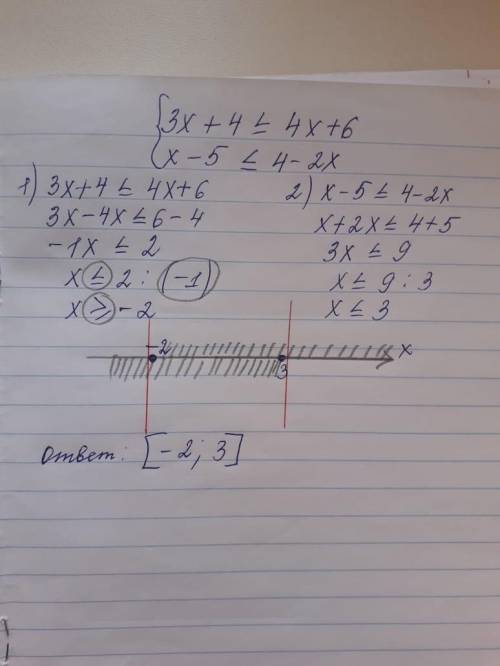 {3x + 4 ≤ 4x + 6
x - 5 ≤ 4 - 2x
1) 3x + 4 ≤ 4x + 6
3x - 4x ≤ 6 - 4
-1x ≤ 2
x ≤ 2 : (-1)
x ≥ -2
2) x - 5 ≤ 4 - 2x
x + 2x ≤ 4 + 5
3x ≤ 9
x ≤ 9 : 3
x ≤ 3
-2 3 x
ответ: [-2; 3]